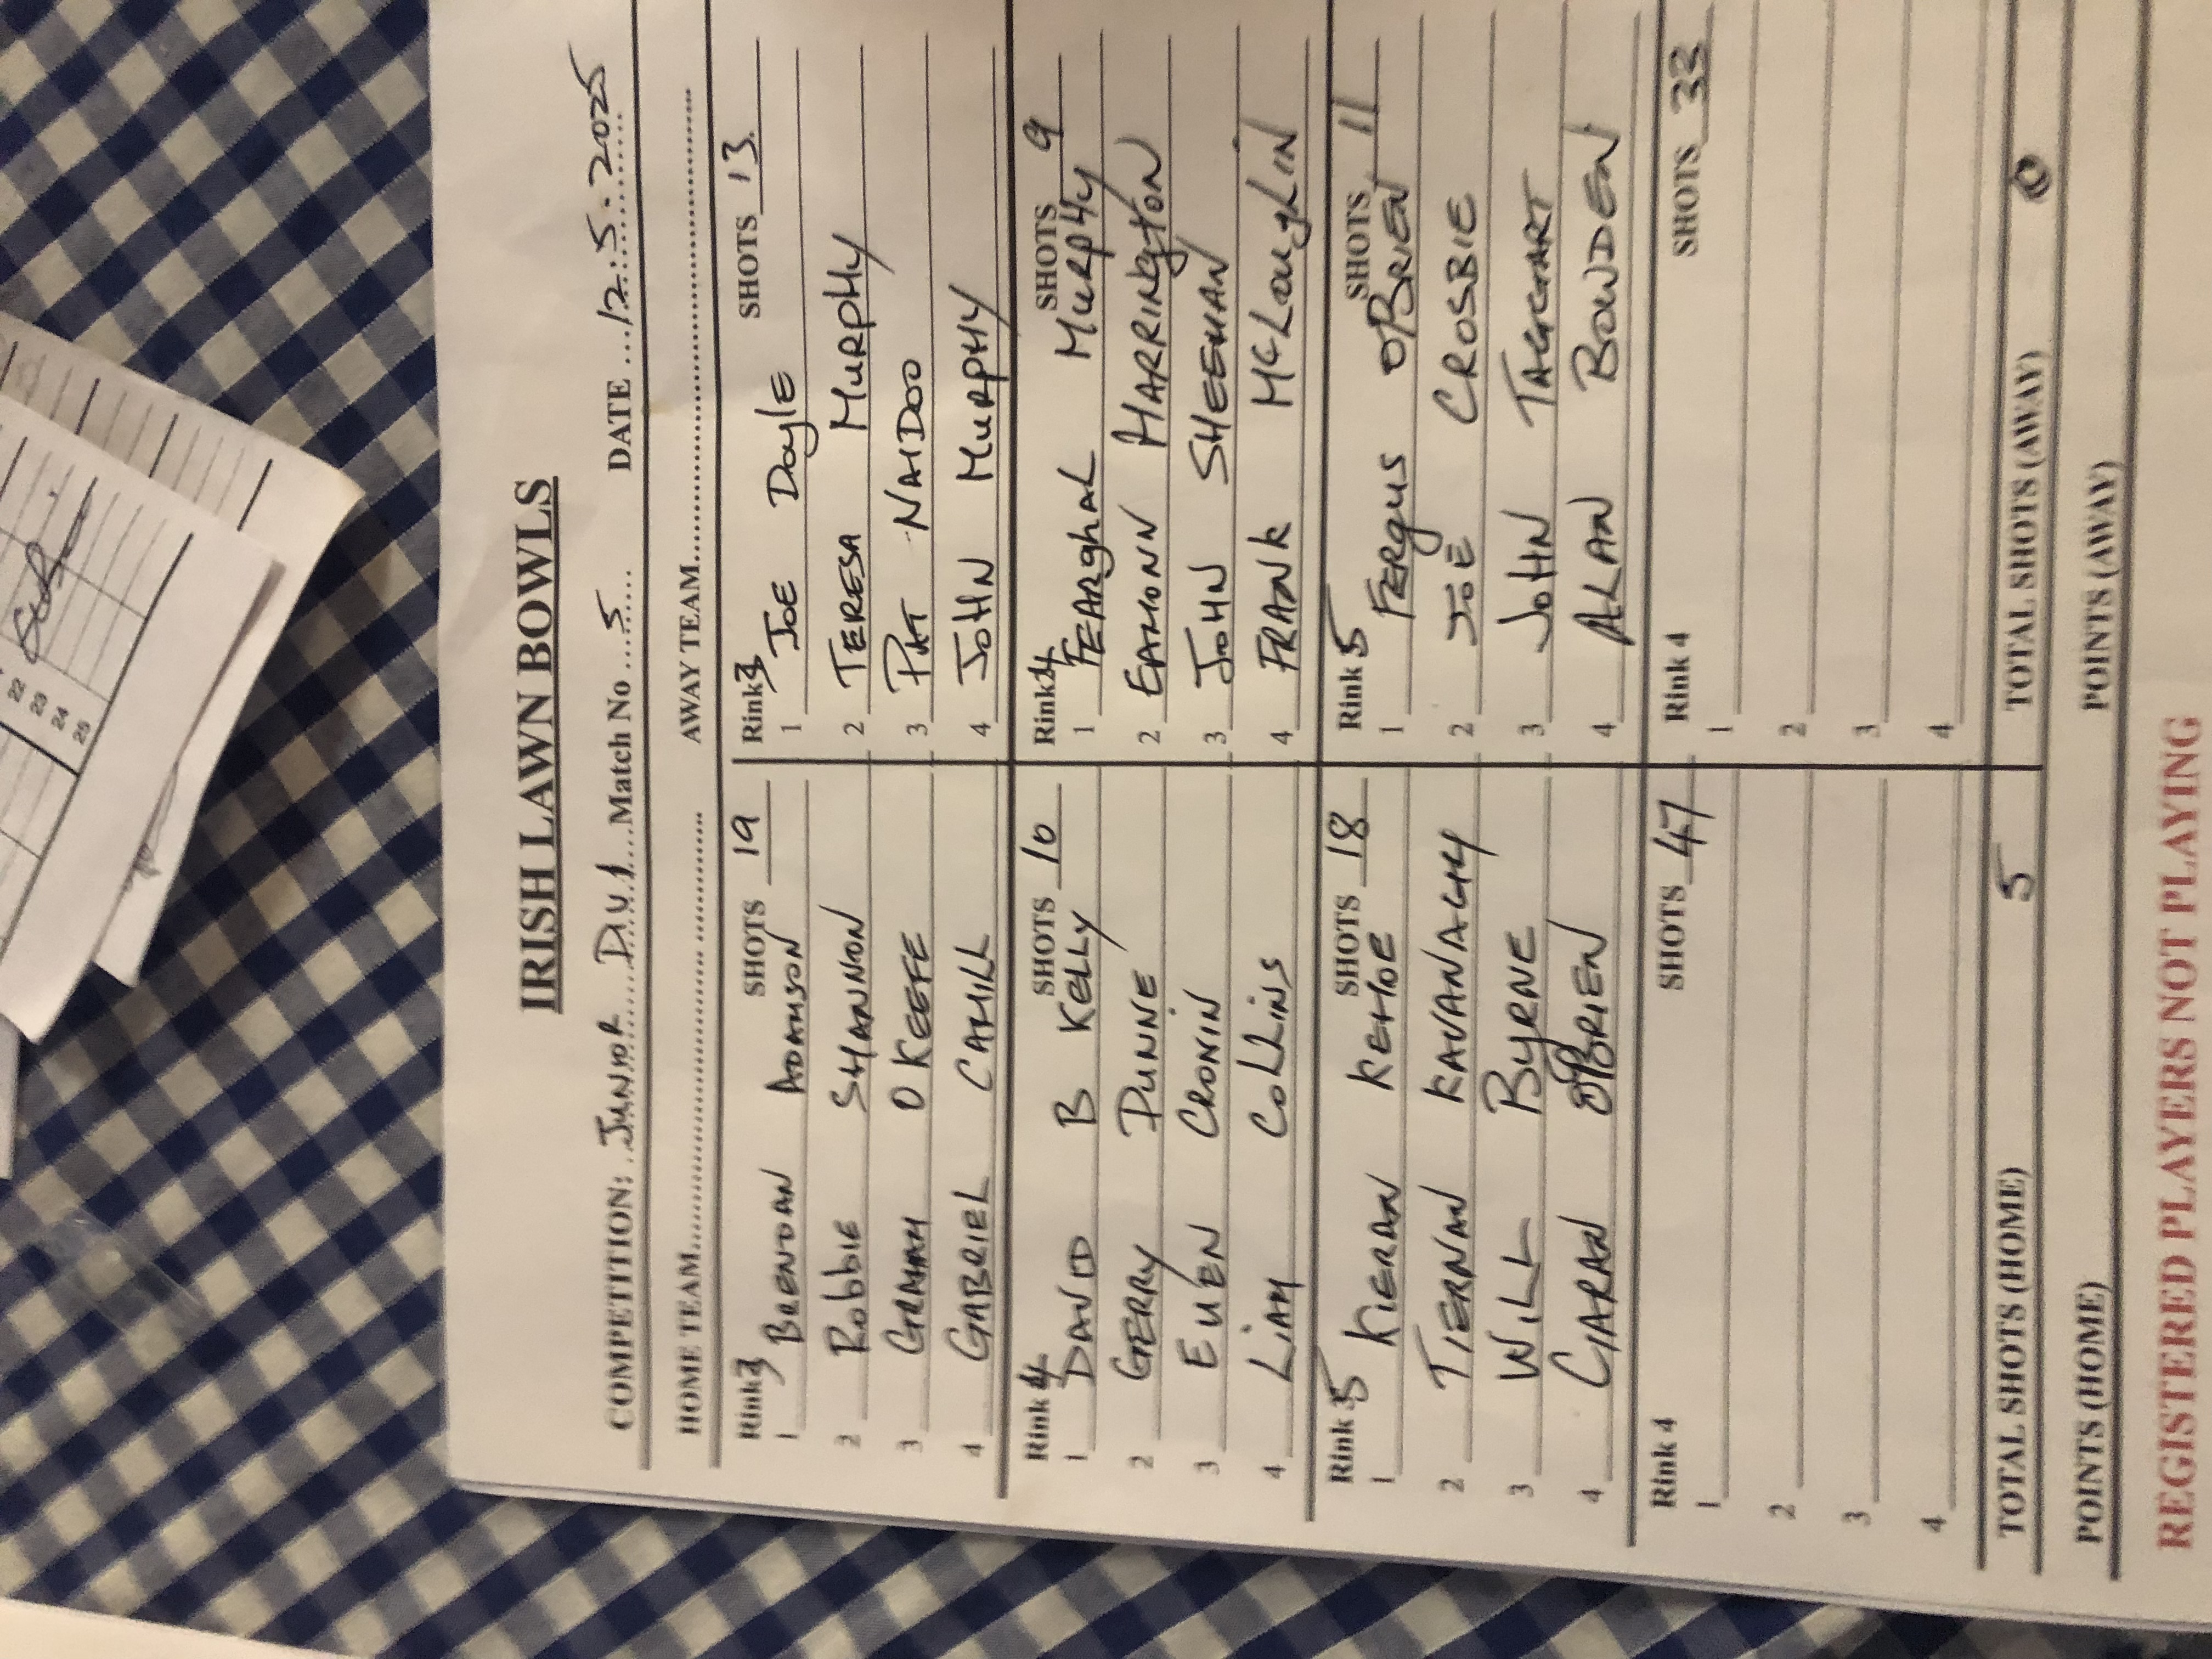 IRISH LAWN BOWLS
COMPETITION: JUNIOR DIV 1 Match No 5 DATE 12.5.2025
HOME TEAM AWAY TEAM
Rink 3 SHOTS 19 Rink 3 SHOTS 13
1 BRENDAN ADAMSON 1 JOE DOyLE
2 RObbIE SHANNON 2 TERESA MURPHY
3 GRAHAM O KEEFE 3 PAT NAIDOO
4 GABRIEL CAHILL 4 JOHN MURPHY
Rink 4 SHOTS 10 Rink 4 SHOTS 9
1 DAVID B KELLY 1 FEARghAL MURPHY
2 GERRY DUNNE 2 EAMONN HARRINgTON
3 EUEN CRONIN 3 JOHN SHEEHAN
4 LIAM COLLINS 4 FRANK McLOUgHLIN
Rink 5 SHOTS 18 Rink 5 SHOTS 11
1 KIERAN KEHOE 1 FERgUS O'BRIEN
2 TIERNAN KAVANAGH 2 JOE CROSBIE
3 WILL BYRNE 3 JOHN TAGGART
4 CIARAN O'BRIEN 4 ALAN BOWDEN
Rink 4 SHOTS 47 Rink 4 SHOTS 33
1 1
2 2
3 3
4 4
TOTAL SHOTS (HOME) 5 TOTAL SHOTS (AWAY) 0
POINTS (HOME) POINTS (AWAY)
REGISTERED PLAYERS NOT PLAYING
22
23
24
25